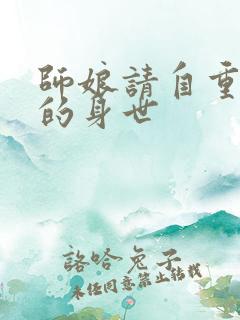 師娘請自重
的身世
詻哈兔子
未經同意禁止轉載